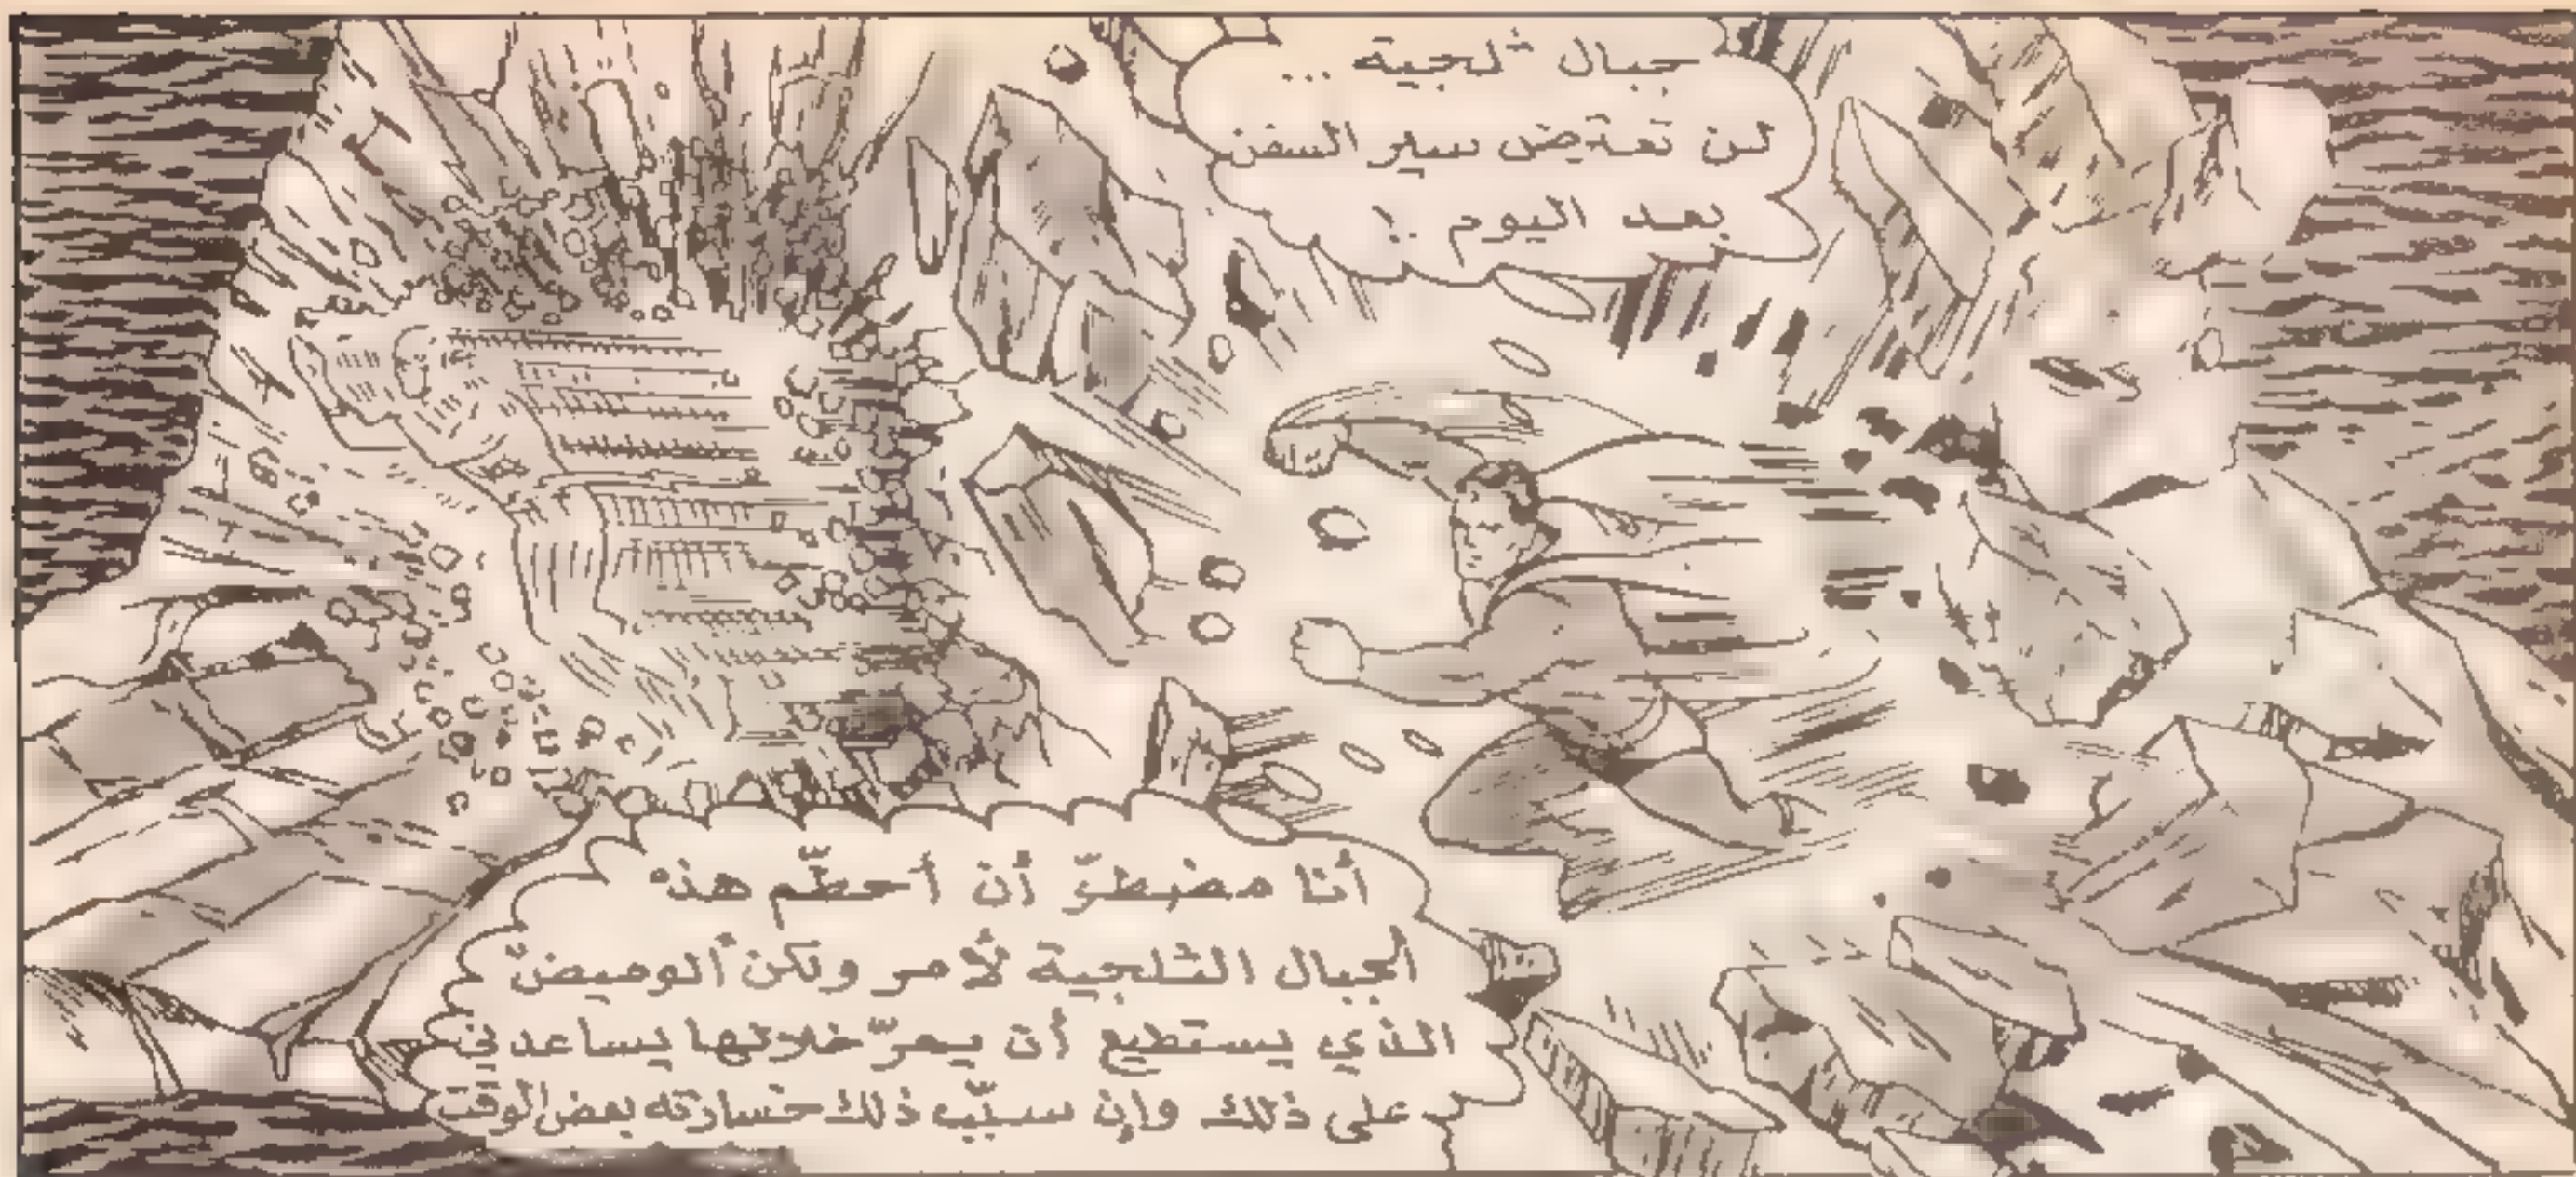 جبال ثلجية ...
لن تعترض سير السفن
بعد اليوم ..!
أنا مضطرّ أن أحطّم هذه
الجبال الثلجية لأمر ولكن "الوميض"
الذي يستطيع أن يمرّ خلالها يساعدني
على ذلك وإن سبّب ذلك خسارته بعض الوقت